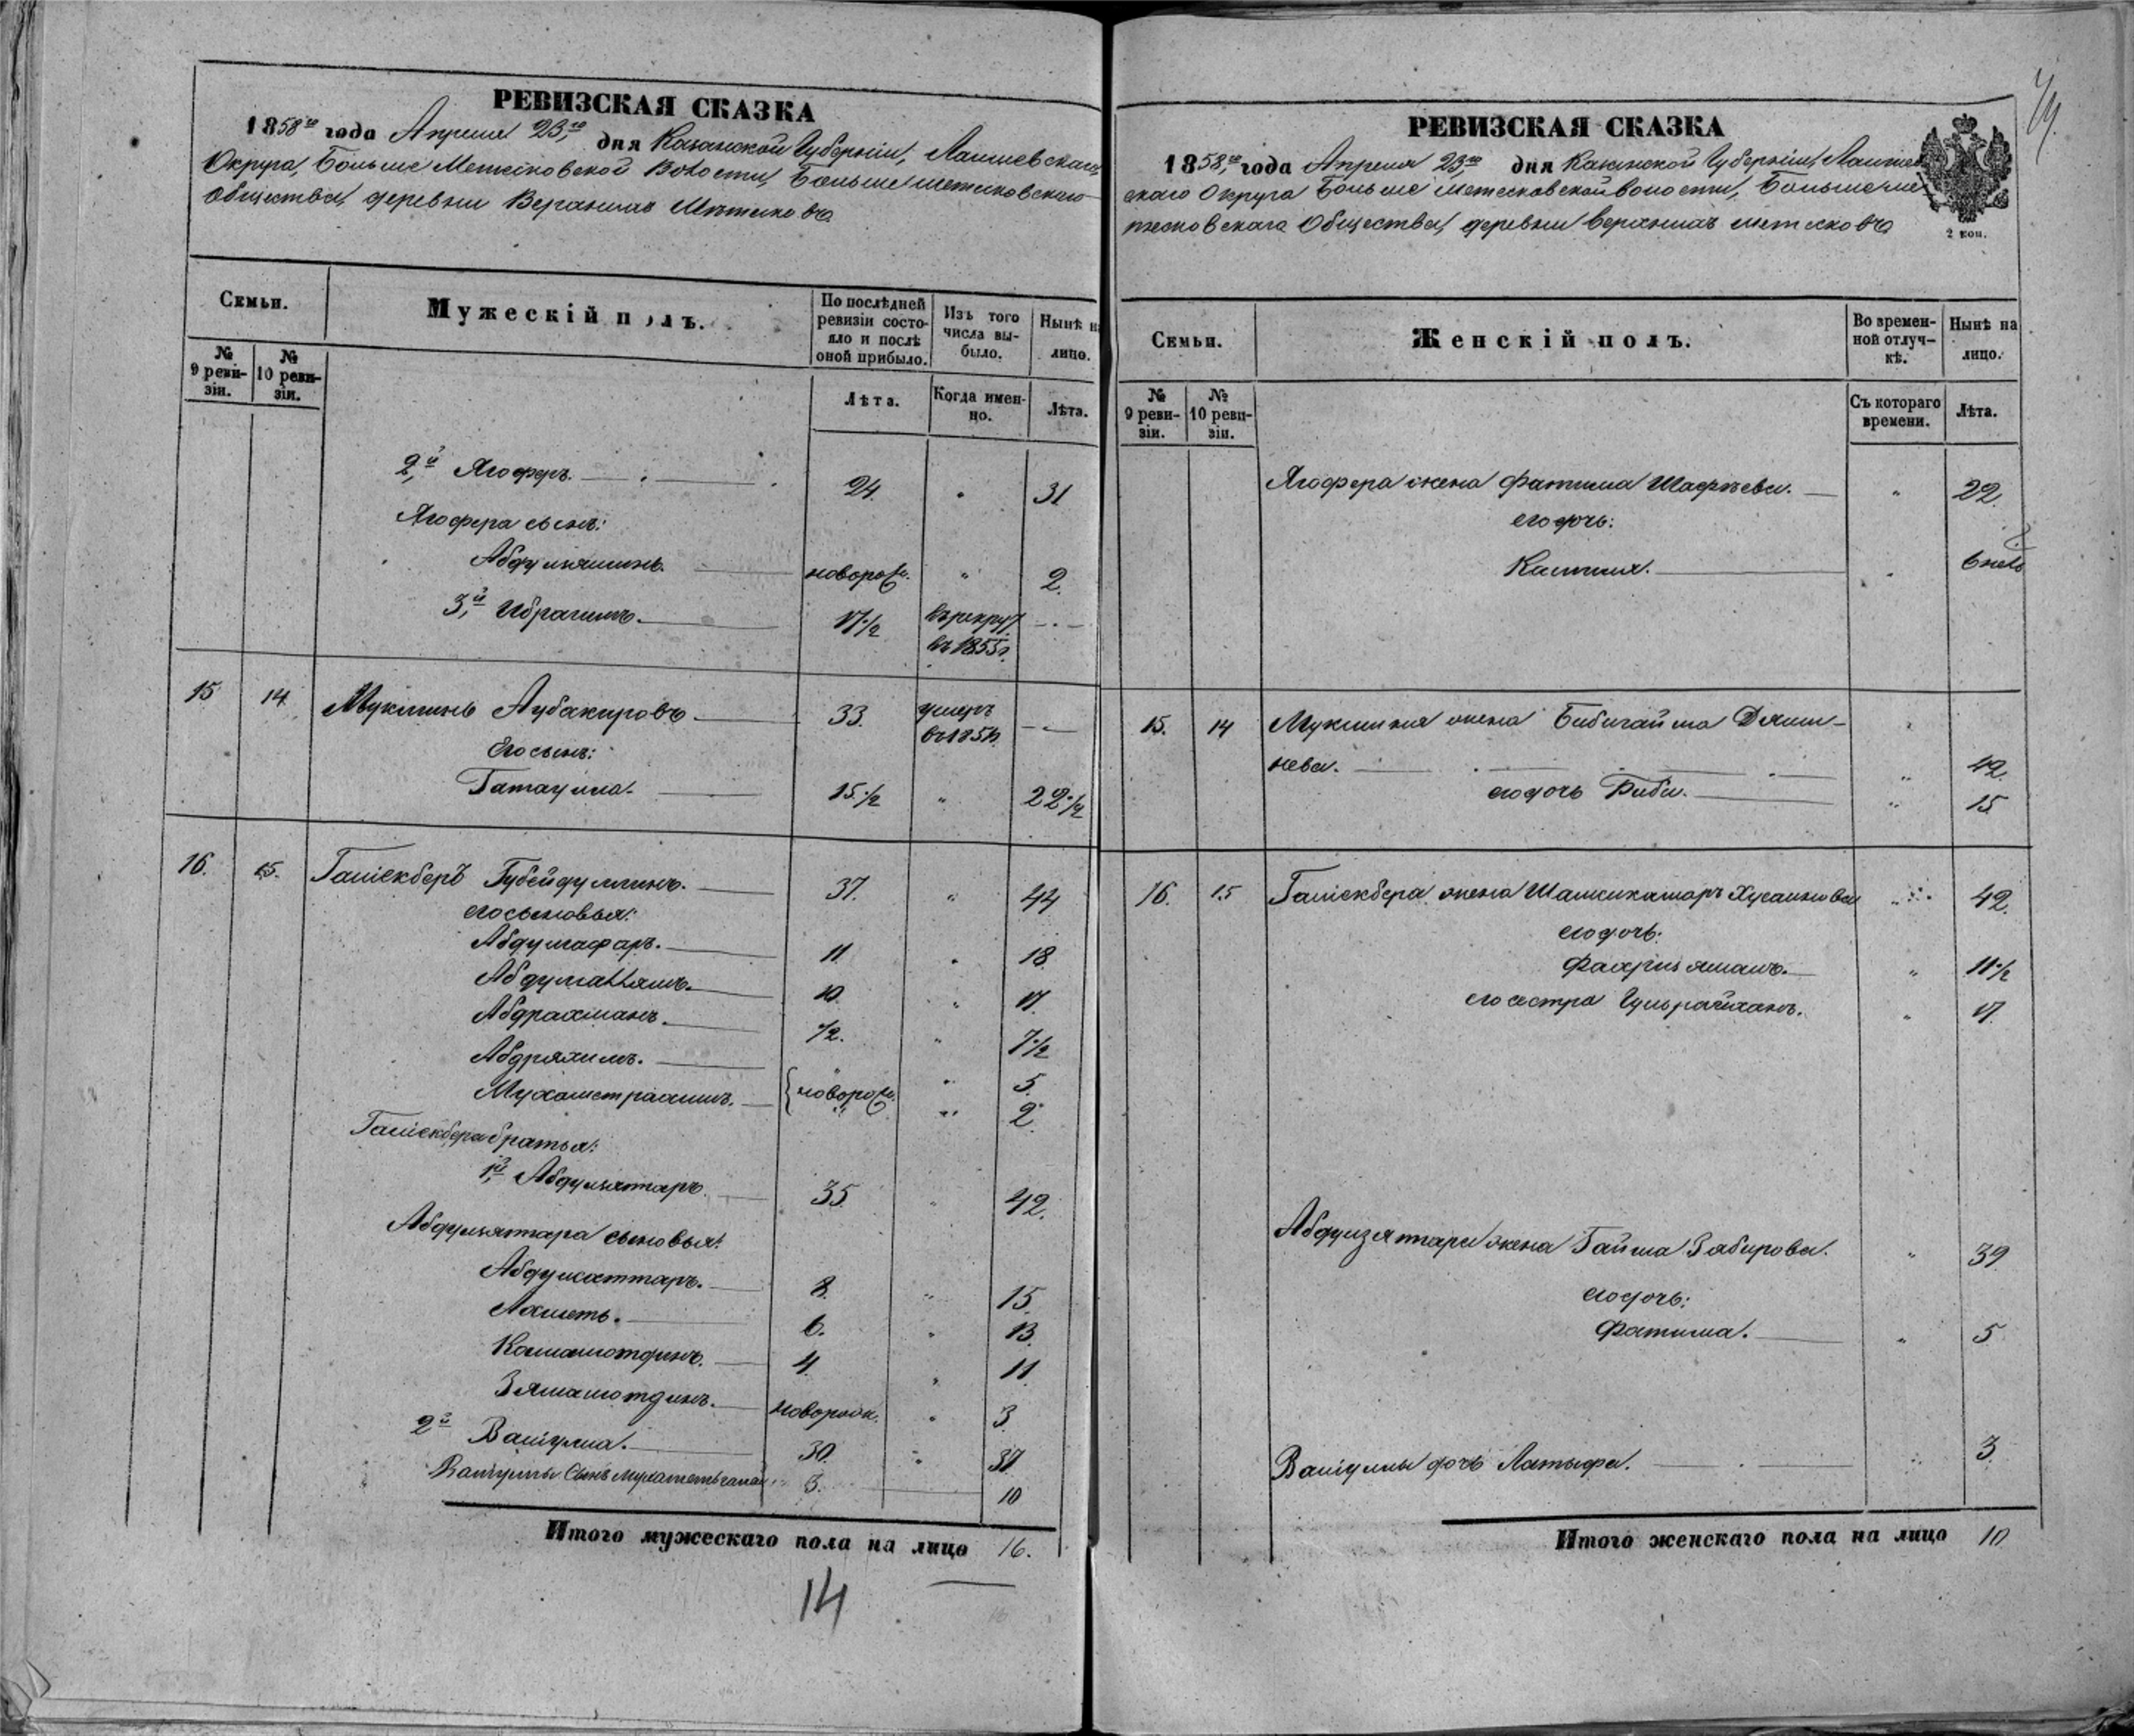 РЕВИЗСКАЯ СКАЗКА
1858го года Апреля 23,го дня Казанской Губерніи, Лаишевскаго
Округа, Больше Метесковской Волости, Больше метесковскаго
Общества, деревни Верхнихъ Метесковъ
Семьи.
Мужескій полъ.
По послѣдней ревизіи состояло и послѣ оной прибыло.
Изъ того числа выбыло.
Нынѣ на лицо.
№ 9 ревизіи.
№ 10 ревизіи.
Лѣта.
Когда именно.
Лѣта.
2,й Ягоферъ. 24. „ 31
Ягофера сынъ:
новорож. „ 2.
3,й Ибрагимъ. 17½ въ рекрут
въ 1855г.
15 14 Мукминь Аубакировъ 33. умеръ
Его сынъ:
Гатаулла. 15½ „ 22½
16. 15. Галіекберъ Губейдуллинъ. 37. „ 44
его сыновья:
Абдулгафаръ. 11. „ 18.
10. „ 17.
Абдрахманъ. ½. „ 7½
Абдряхимъ. „ 5.
Мухаметрахимъ. новорож. „ 2.
Галіекбера братья:
1,й 35. „ 42.
сыновья:
Абдулсаттаръ. 8. „ 15.
Ахметь. 6. „ 13.
Камалютдинъ. 4. „ 11.
Зямалютдинъ. новорож. „ 3
2й Валіулла. 30. „ 37.
Валіуллы Сынъ 3. 10
Итого мужескаго пола на лицо 16.
14
РЕВИЗСКАЯ СКАЗКА
1858,го года Апреля 23,го дня Казанской Губерніи, Лаише
скаго Округа Больше метесковской волости, Большеме
тесковскаго Общества, деревни верхнихъ метесковъ
2 коп.
Семьи.
Женскій полъ.
Во временной отлучкѣ.
Нынѣ на лицо.
№ 9 ревизіи.
№ 10 ревизіи.
Съ котораго времени.
Лѣта.
Ягофера жена Фатима Шафѣева. „ 22.
его дочь:
15. 14 Мукминя жена Бибигайша
нева. „ 42.
его дочь Биби. „ 15
16. 15 Галіекбера жена Шамсикамаръ Хусаинова „ 42.
его дочь:
„ 11½
его сестра Гульрайханъ. „ 17.
жена Гайша Забирова. „ 39
его дочь:
Фатима. „ 5
Валіуллы дочь Латыфа. 3.
Итого женскаго пола на лицо 10